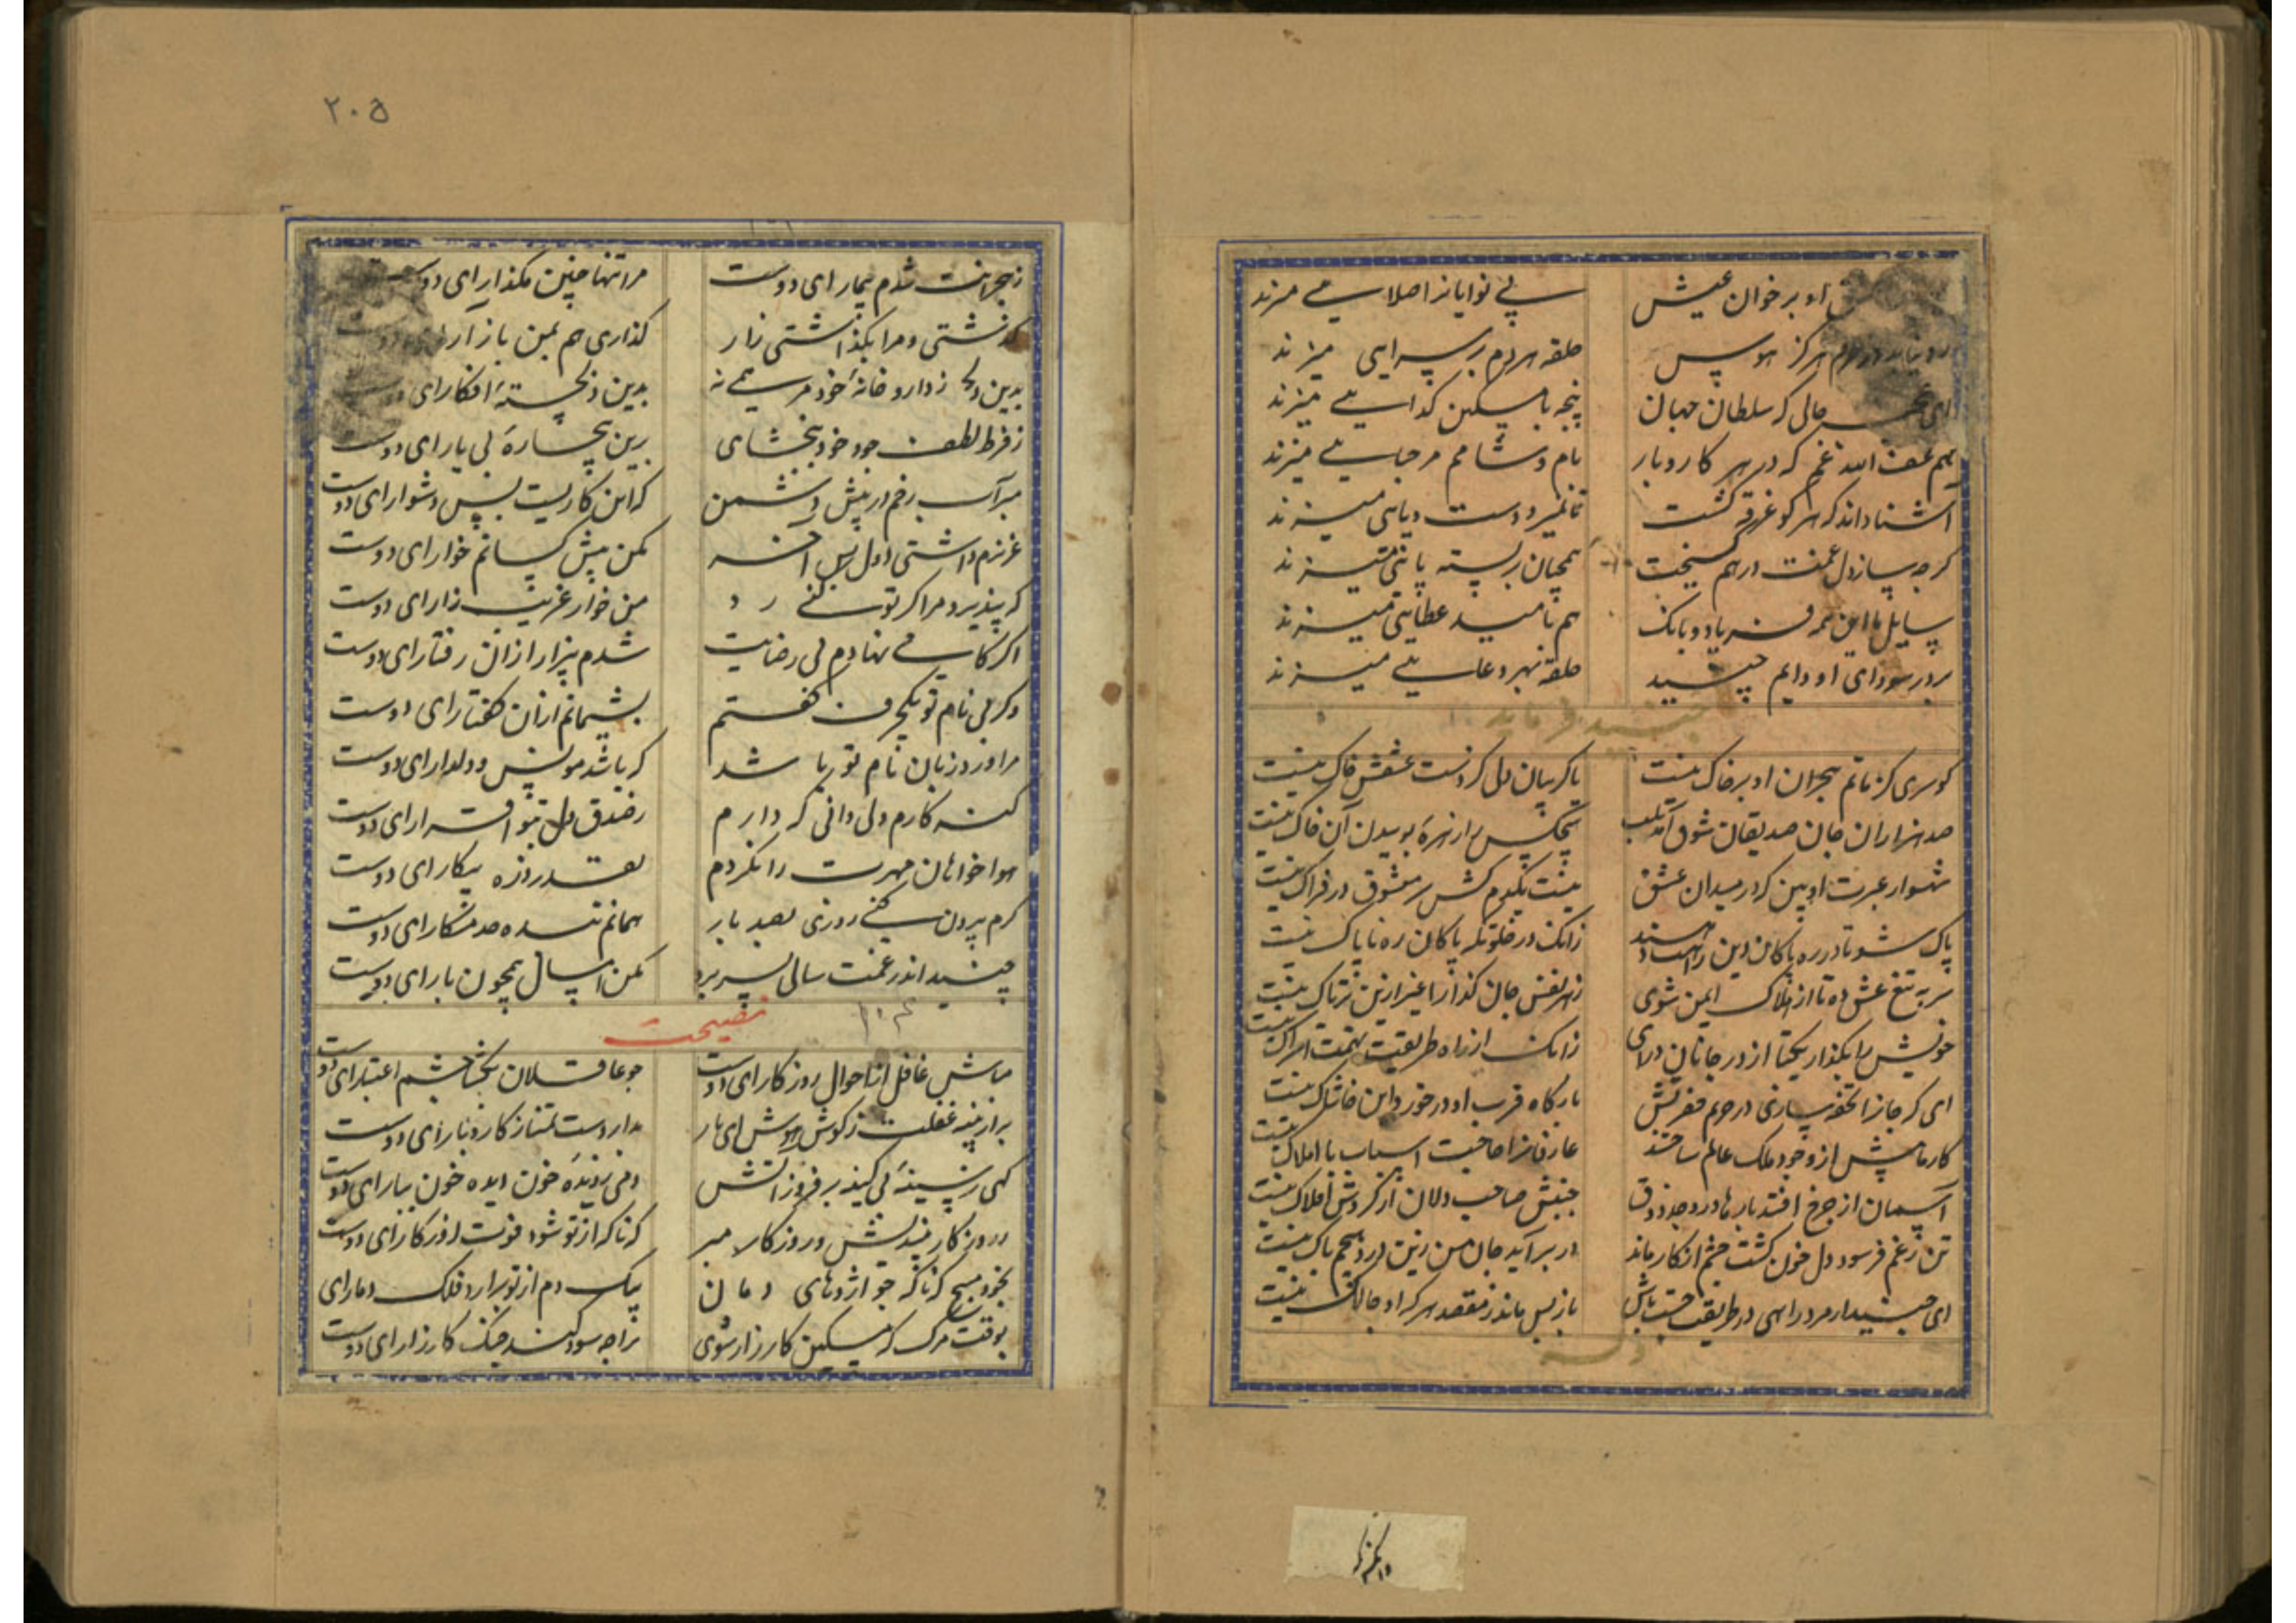 او بر خوان عیش
بی نوایانرا صلایی میزند
هرگز هوس
حلقه هر دم بر سرایی میزند
حالی که سلطان جهان
پنجه با مسکین گدایی میزند
غم که در هر کار و بار
نام و مرحبایی میزند
اشنا داند که هر کو غرقه گشت
تا نمیرد دست و پایی میزند
درهم گسیخت
همچنان
سایل با این همه فریاد و بانک
هم بامید عطایی میزند
بر در سودای او دایم جنید
حلقه بهر دعایی میزند
جنید فرماید
کو سری کز ماتم هجران او بر خاک نیست
یا گریبان دلی کز دست عشقش چاک نیست
صد هزاران جان صدیقان شوق آمد بلب
هیچکس را زهره بوسیدن آن خاک نیست
شهسوار عبرت او بین که در میدان عشق
نیست یکدم کش سر معشوق در فتراک نیست
پاک شو تا در ره پاکان دین راهت دهند
زانک در خلوتگه پاکان ره ناپاک نیست
سر به تیغ عشق ده تا از هلاک ایمن شوی
زهر نفس جان گذارا غیر ازین تریاک نیست
خویش را بگذار یکتا از در جانان درای
زانک از راه طریقیت تهمت اشراک نیست
ای که جانرا تحفه سازی در حریم فقر تنش
بارگاه قرب او در خورد این خاشاک نیست
از وجود ملک عالم ساختند
عارفانرا حاجت اسباب با املاک نیست
آسمان از چرخ افتد بارها در وجد و ذوق
جنبش صاحب دلان از گردش افلاک نیست
تن ز غم فرسود دل خون گشت چشم از کار ماند
در بر آید جان من زین درد هیچم باک نیست
ای جنید ار مرد راهی در طریقت باش
باز پس ماند ز مقصد هر که او چالاک نیست
وله
۲۰۵
ز هجرانت شدم بیمار ای دوست
مرا تنها چنین مگذار ای دوست
گذشتی و مرا بگذاشتی زار
گذاری هم بمن باز ار ای دوست
ز داروخانهٔ خود مرهمی نه
بدین دلخستهٔ افکار ای دوست
ز فرط لطف جود خود ببخشای
برین بیچارهٔ بی یار ای دوست
مبر آب رخم در پیش دشمن
که این کاریست بس دشوار ای دوست
عزیزم داشتی اول پس آخر
مکن پیش کسانم خوار ای دوست
که پذیرد مرا گر تو کنی رد
من خوار غریب زار ای دوست
اگر گامی نهادم بی رضایت
شدم بیزار از آن رفتار ای دوست
وگر بی نام تو یکحرف گفتم
پشیمانم از آن گفتار ای دوست
مرا ورد زبان نام تو باشد
که باشد مونس و دلدار ای دوست
گنه کارم ولی دانی که دارم
بصدق دل بتو اقرار ای دوست
هوا خواهان مهرت را نکردم
بقدر ذره پیکار ای دوست
گرم بیرون کنی روزی بصد بار
همانم بنده خدمتکار ای دوست
جنید اندر غمت سالی بسر برد
مکن امسال همچون پار ای دوست
نصیحت
مباش غافل از احوال روزگار ای دوست
چو عاقلان بگشا چشم اعتبار ای دوست
برار پنبه غفلت ز گوش هوش ای یار
بدار دست تمنا ز کار و بار ای دوست
گهی ز سینهٔ بی کینه بر فروز آتش
دمی ز دیده خون دیده خون ببار ای دوست
ز روزگار بیندیش و روزگار مبر
که ناگه از تو شود فوت روزگار ای دوست
بخود مپیچ که ناگه چو اژدهای دمان
بیک دم از تو برارد فلک دمار ای
بوقت مرگ که مسکین کارزار شوی
ترا چه سود کند جنگ کارزار ای دوست